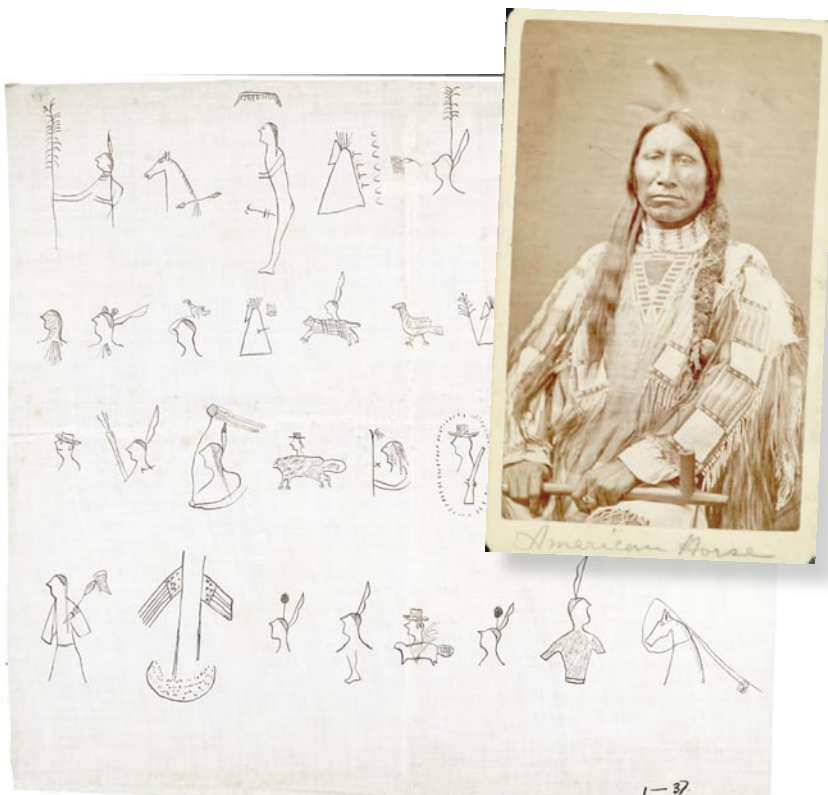 American Horse
1—37